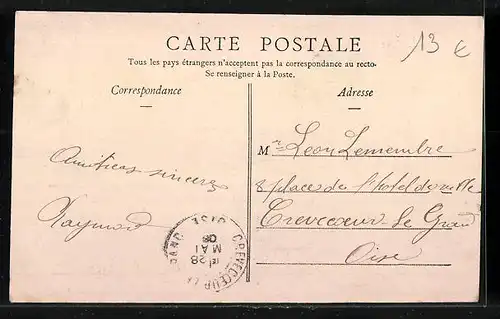 CARTE POSTALE
13 €
Tous les pays étrangers n'acceptent pas la correspondance au recto-
Se renseigner à la Poste.
Correspondance
Adresse
Amitiés sincères
Raymond
Mr Léon Lemembre
8 place de l'hotel de ville
Crevecoeur-le Grand
Oise
CREVECŒUR LE GRAND OISE
28
MAI
08